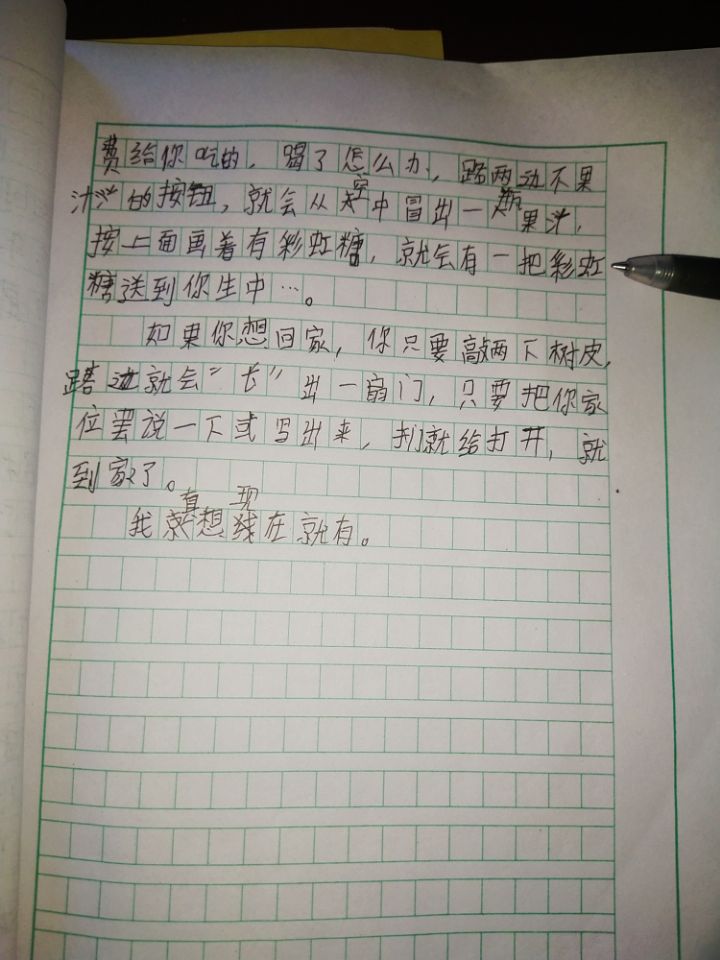 费给你吃的，喝了怎么办，路两边不果
汁的按钮，就会从空中冒出一瓶果汁，
按上面画着有彩虹糖，就会有一把彩虹
糖送到你生中…。
如果你想回家，你只要敲两下树皮，
路边就会“长”出一扇门，只要把你家
位置说一下或写出来，判就给打开，就
到家了。
我真想现在就有。